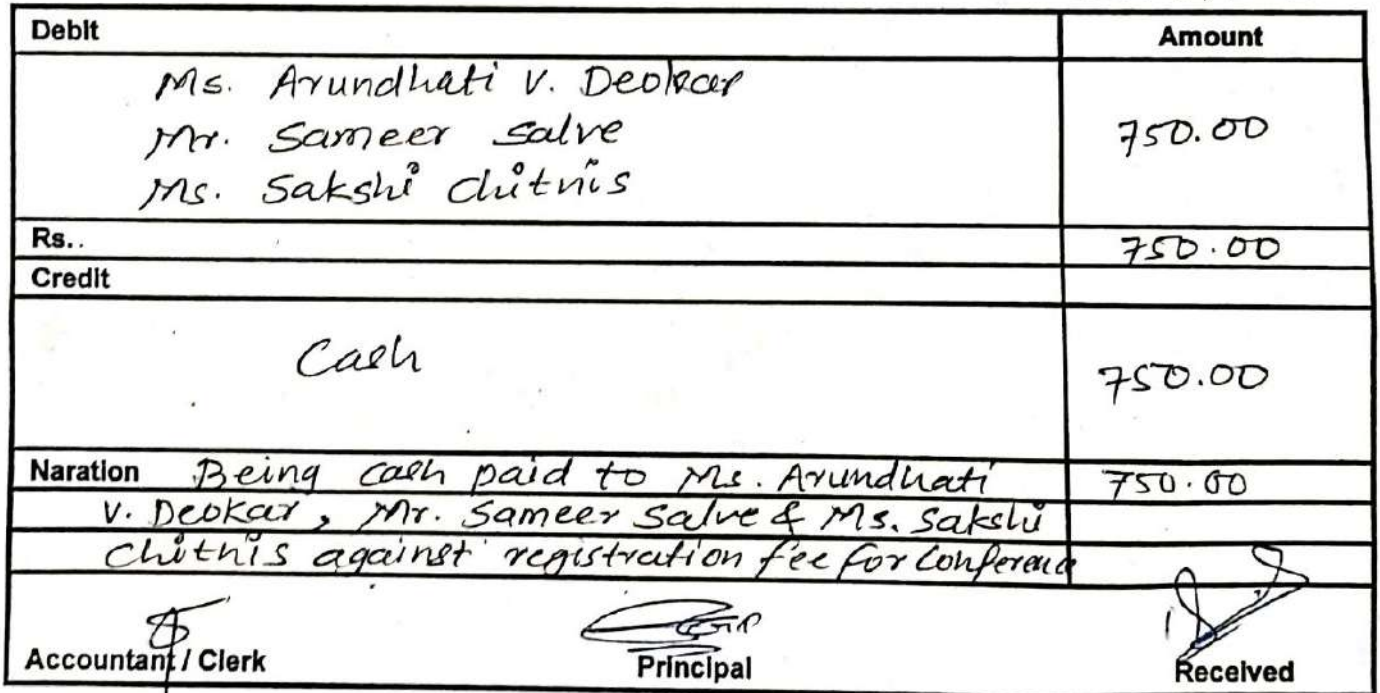 Debit Amount
Ms. Arundhati V. Deokar
Mr. Sameer Salve 750.00
Ms. Sakshi Chitnis
Rs.. 750.00
Credit
Cash 750.00
Naration Being cash paid to Ms. Arundhati 750.00
V. Deokar, Mr. Sameer Salve & Ms. Sakshi
Chitnis against registration fee for Conference
Accountant / Clerk Principal Received